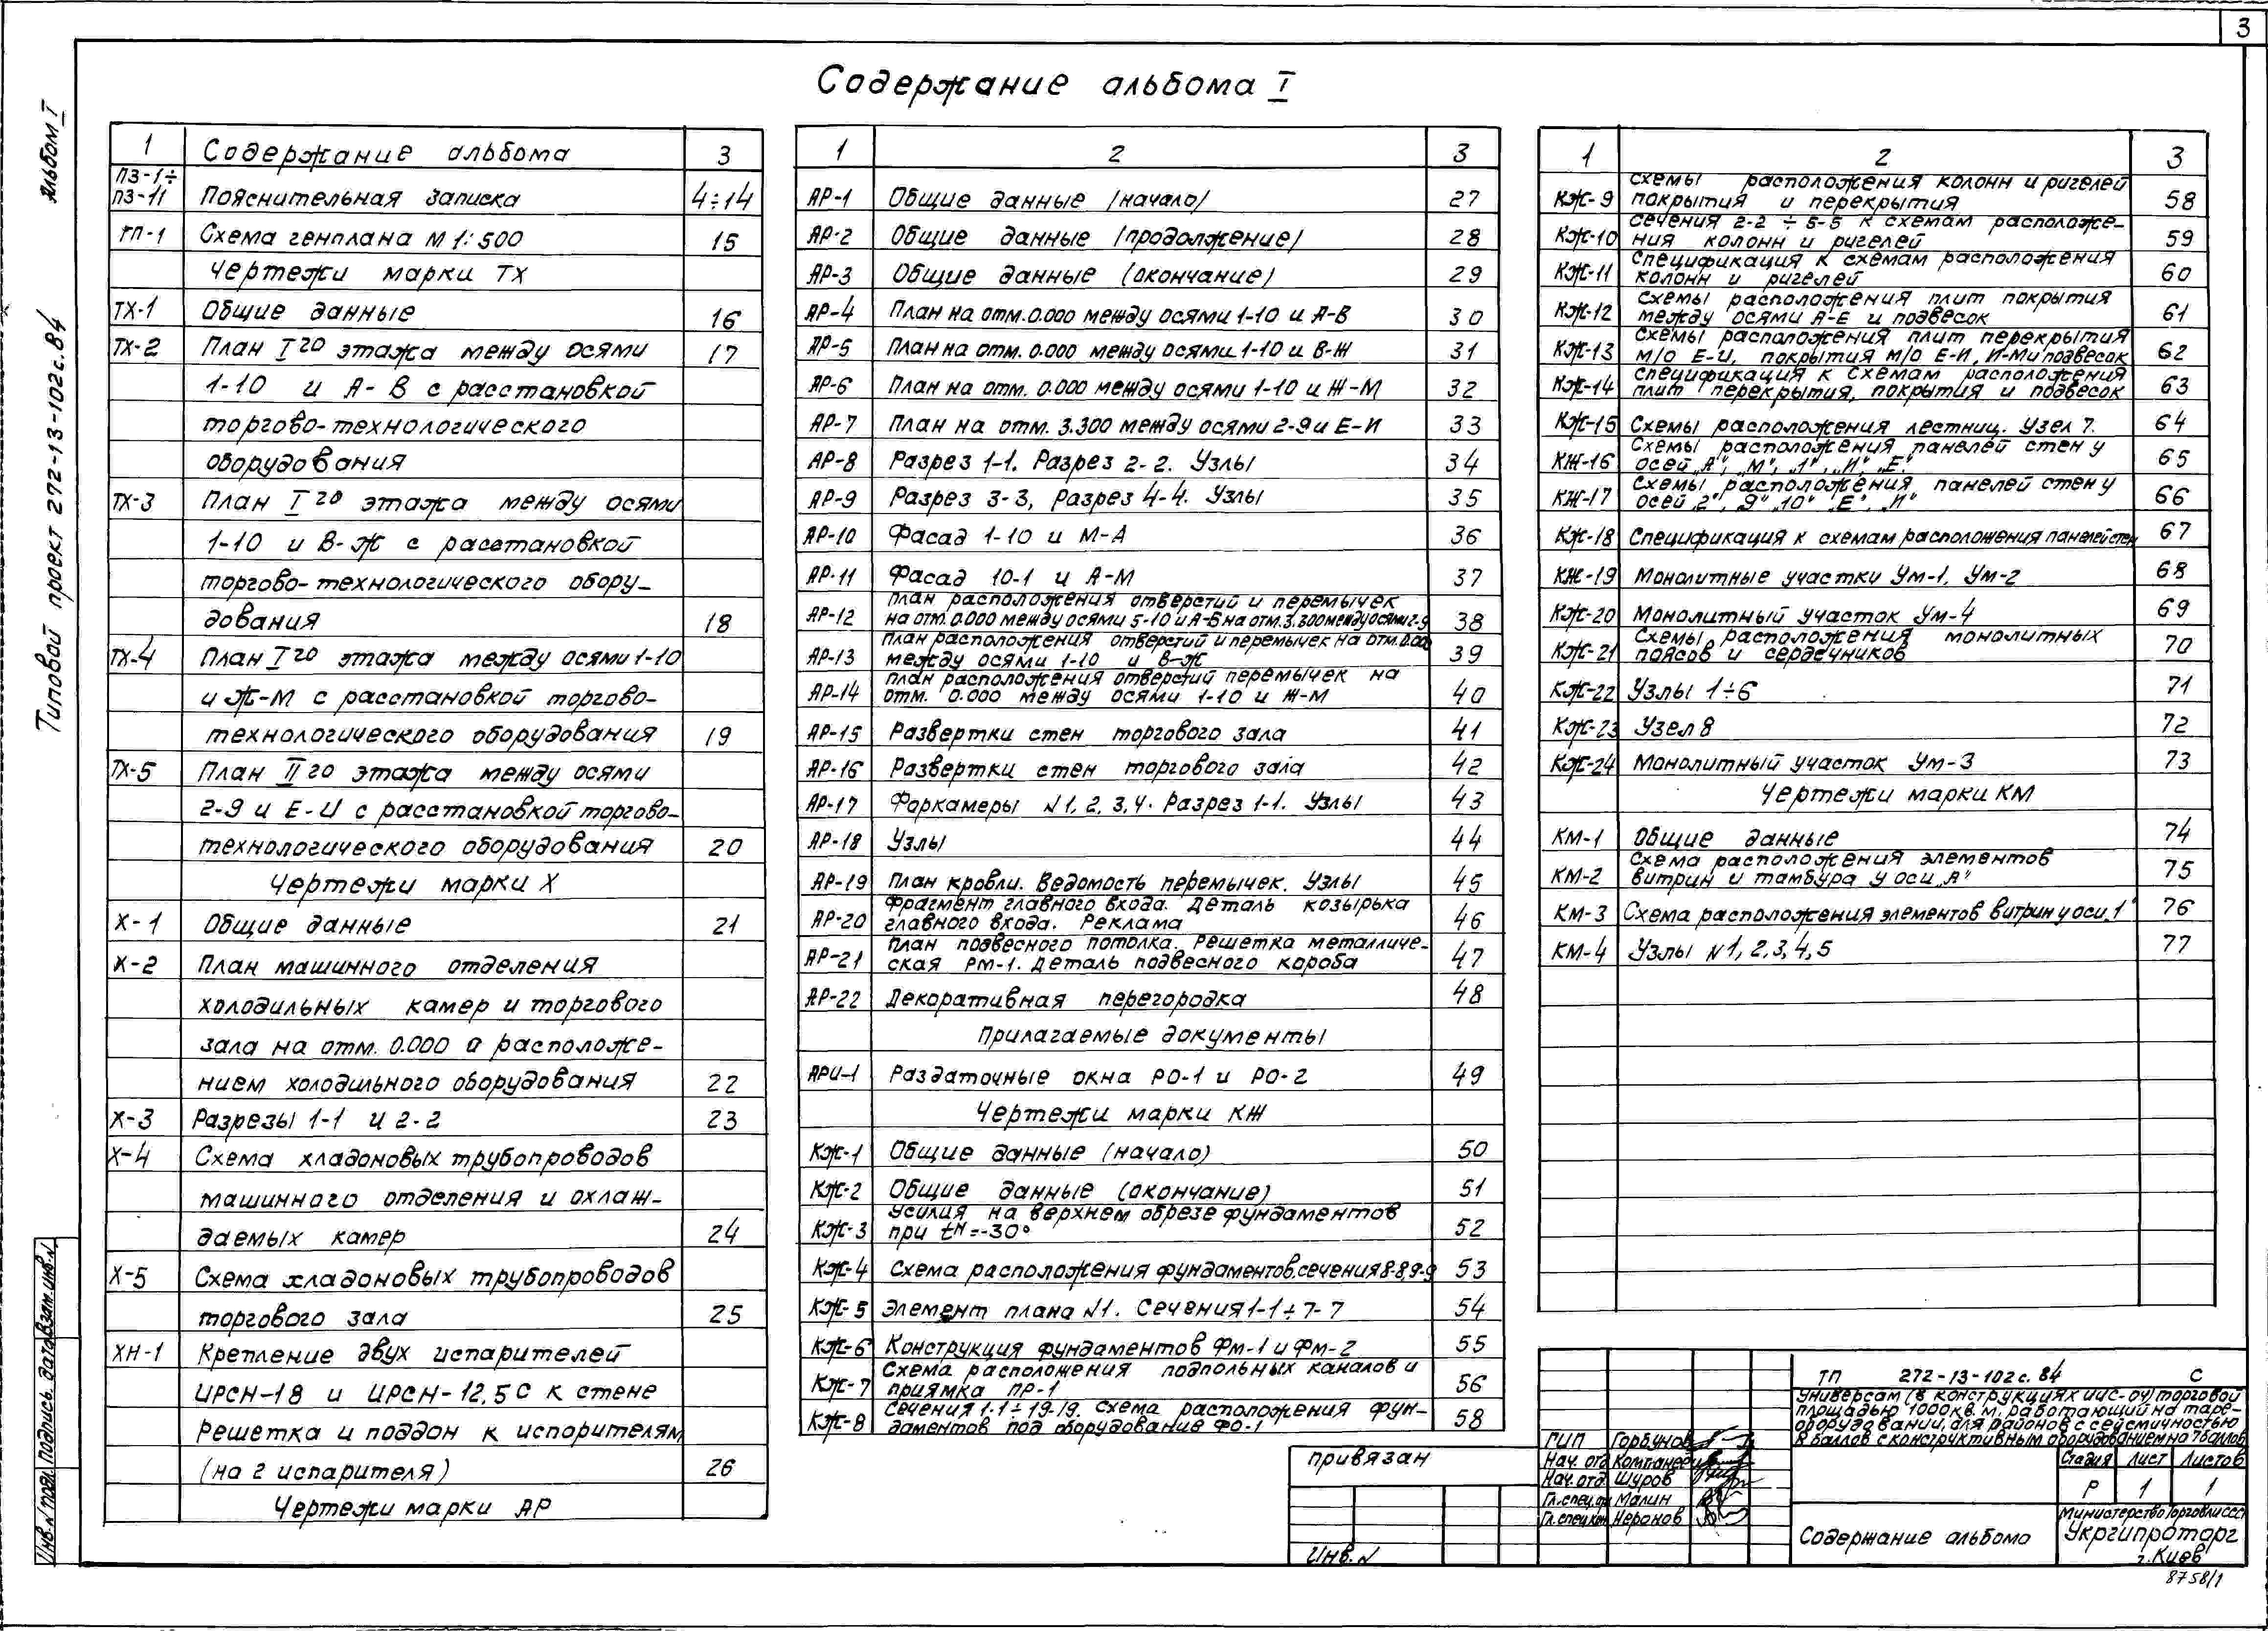 3
Содержание альбома I
Альбом I
Типовой проект 272-13-102с.84
1 Содержание альбома 3
ПЗ-1÷
ПЗ-11 Пояснительная записка 4÷14
ГП-1 Схема генплана М 1:500 15
Чертежи марки ТХ
ТХ-1 Общие данные 16
ТХ-2 План I го этажа между осями 17
1-10 и А-В с расстановкой
торгово-технологического
оборудования
ТХ-3 План I го этажа между осями
1-10 и В-Ж с расстановкой
торгово-технологического обору-
дования 18
ТХ-4 План I го этажа между осями 1-10
и Ж-М с расстановкой торгово-
технологического оборудования 19
ТХ-5 План II го этажа между осями
2-9 и Е-И с расстановкой торгово-
технологического оборудования 20
Чертежи марки Х
Х-1 Общие данные 21
Х-2 План машинного отделения
холодильных камер и торгового
зала на отм. 0.000 с расположе-
нием холодильного оборудования 22
Х-3 Разрезы 1-1 и 2-2 23
Х-4 Схема хладоновых трубопроводов
машинного отделения и охлаж-
даемых камер 24
Х-5 Схема хладоновых трубопроводов
торгового зала 25
ХН-1 Крепление двух испарителей
ИРСН-18 и ИРСН-12,5С к стене
Решетка и поддон к испорителям
(на 2 испарителя) 26
Чертежи марки АР
1 2 3
АР-1 Общие данные /начало/ 27
АР-2 Общие данные /продолжение/ 28
АР-3 Общие данные (окончание) 29
АР-4 План на отм. 0.000 между осями 1-10 и А-В 30
АР-5 План на отм. 0.000 между осями 1-10 и В-Ж 31
АР-6 План на отм. 0.000 между осями 1-10 и Ж-М 32
АР-7 План на отм. 3.300 между осями 2-9 и Е-И 33
АР-8 Разрез 1-1. Разрез 2-2. Узлы 34
АР-9 Разрез 3-3, Разрез 4-4. Узлы 35
АР-10 Фасад 1-10 и М-А 36
АР-11 Фасад 10-1 и А-М 37
План расположения отверстий и перемычек
АР-12 на отм. 0.000 между осями 5-10 и А-Б на отм. 3.300 между осями 2-9 38
План расположения отверстий и перемычек на отм. 0.000
АР-13 между осями 1-10 и В-Ж 39
План расположения отверстий перемычек на
АР-14 отм. 0.000 между осями 1-10 и Ж-М 40
АР-15 Развертки стен торгового зала 41
АР-16 Развертки стен торгового зала 42
АР-17 Форкамеры N1,2,3,4. Разрез 1-1. Узлы 43
АР-18 Узлы 44
АР-19 План кровли. Ведомость перемычек. Узлы 45
Фрагмент главного входа. Деталь козырька
АР-20 главного входа. Реклама 46
План подвесного потолка. Решетка металличе-
АР-21 ская РМ-1. Деталь подвесного короба 47
АР-22 Декоративная перегородка 48
Прилагаемые документы
АРИ-1 Раздаточные окна РО-1 и РО-2 49
Чертежи марки КЖ
КЖ-1 Общие данные (начало) 50
КЖ-2 Общие данные (окончание) 51
Усилия на верхнем обрезе фундаментов
КЖ-3 при tн=-30° 52
КЖ-4 Схема расположения фундаментов, сечения 8-8, 9-9 53
КЖ-5 Элемент плана N1. Сечения 1-1÷7-7 54
КЖ-6 Конструкция фундаментов Фм-1 и Фм-2 55
Схема расположения подпольных каналов и
КЖ-7 приямка ПР-1 56
Сечения 1-1÷19-19. Схема расположения фун-
КЖ-8 даментов под оборудование ФО-1 58
1 2 3
Схемы расположения колонн и ригелей
КЖ-9 покрытия и перекрытия 58
Сечения 2-2 ÷ 5-5 к схемам расположе-
КЖ-10 ния колонн и ригелей 59
Спецификация к схемам расположения
КЖ-11 колонн и ригелей 60
Схемы расположения плит покрытия
КЖ-12 между осями А-Е и подвесок 61
Схемы расположения плит перекрытия
КЖ-13 м/о Е-И, покрытия м/о Е-И, И-М и подвесок 62
Спецификация к схемам расположения
КЖ-14 плит перекрытия, покрытия и подвесок 63
КЖ-15 Схемы расположения лестниц. Узел 7. 64
Схемы расположения панелей стен у
КЖ-16 осей „А", „М", „1", „И", „Е." 65
Схемы расположения панелей стен у
КЖ-17 осей „2", „9" „10" „Е", „И" 66
КЖ-18 Спецификация к схемам расположения панелей стен 67
КЖ-19 Монолитные участки Ум-1, Ум-2 68
КЖ-20 Монолитный участок Ум-4 69
Схемы расположения монолитных
КЖ-21 поясов и сердечников 70
КЖ-22 Узлы 1÷6 71
КЖ-23 Узел 8 72
КЖ-24 Монолитный участок Ум-3 73
Чертежи марки КМ
КМ-1 Общие данные 74
Схема расположения элементов
КМ-2 витрин и тамбура у оси „А" 75
КМ-3 Схема расположения элементов витрин у оси „1" 76
КМ-4 Узлы N1,2,3,4,5 77
Инв. N подл. Подпись. дата Взам. инв. N
Привязан
Инв. N
ТП 272-13-102с.84 С
Универсам (в конструкциях ИИС-04) торговой
площадью 1000 кв. м, работающий на таре-
оборудовании, для районов с сейсмичностью
8 баллов с конструктивным оборудованием на 7 баллов
ГИП Горбунов
Нач. отд Компанеец
Нач. отд Шуров
Гл. спец. Малин
Гл. спец. кон Неронов
Стадия Лист Листов
Р 1 1
Содержание альбома
Министерство Торговли СССР
Укргипроторг
г. Киев
8758/1